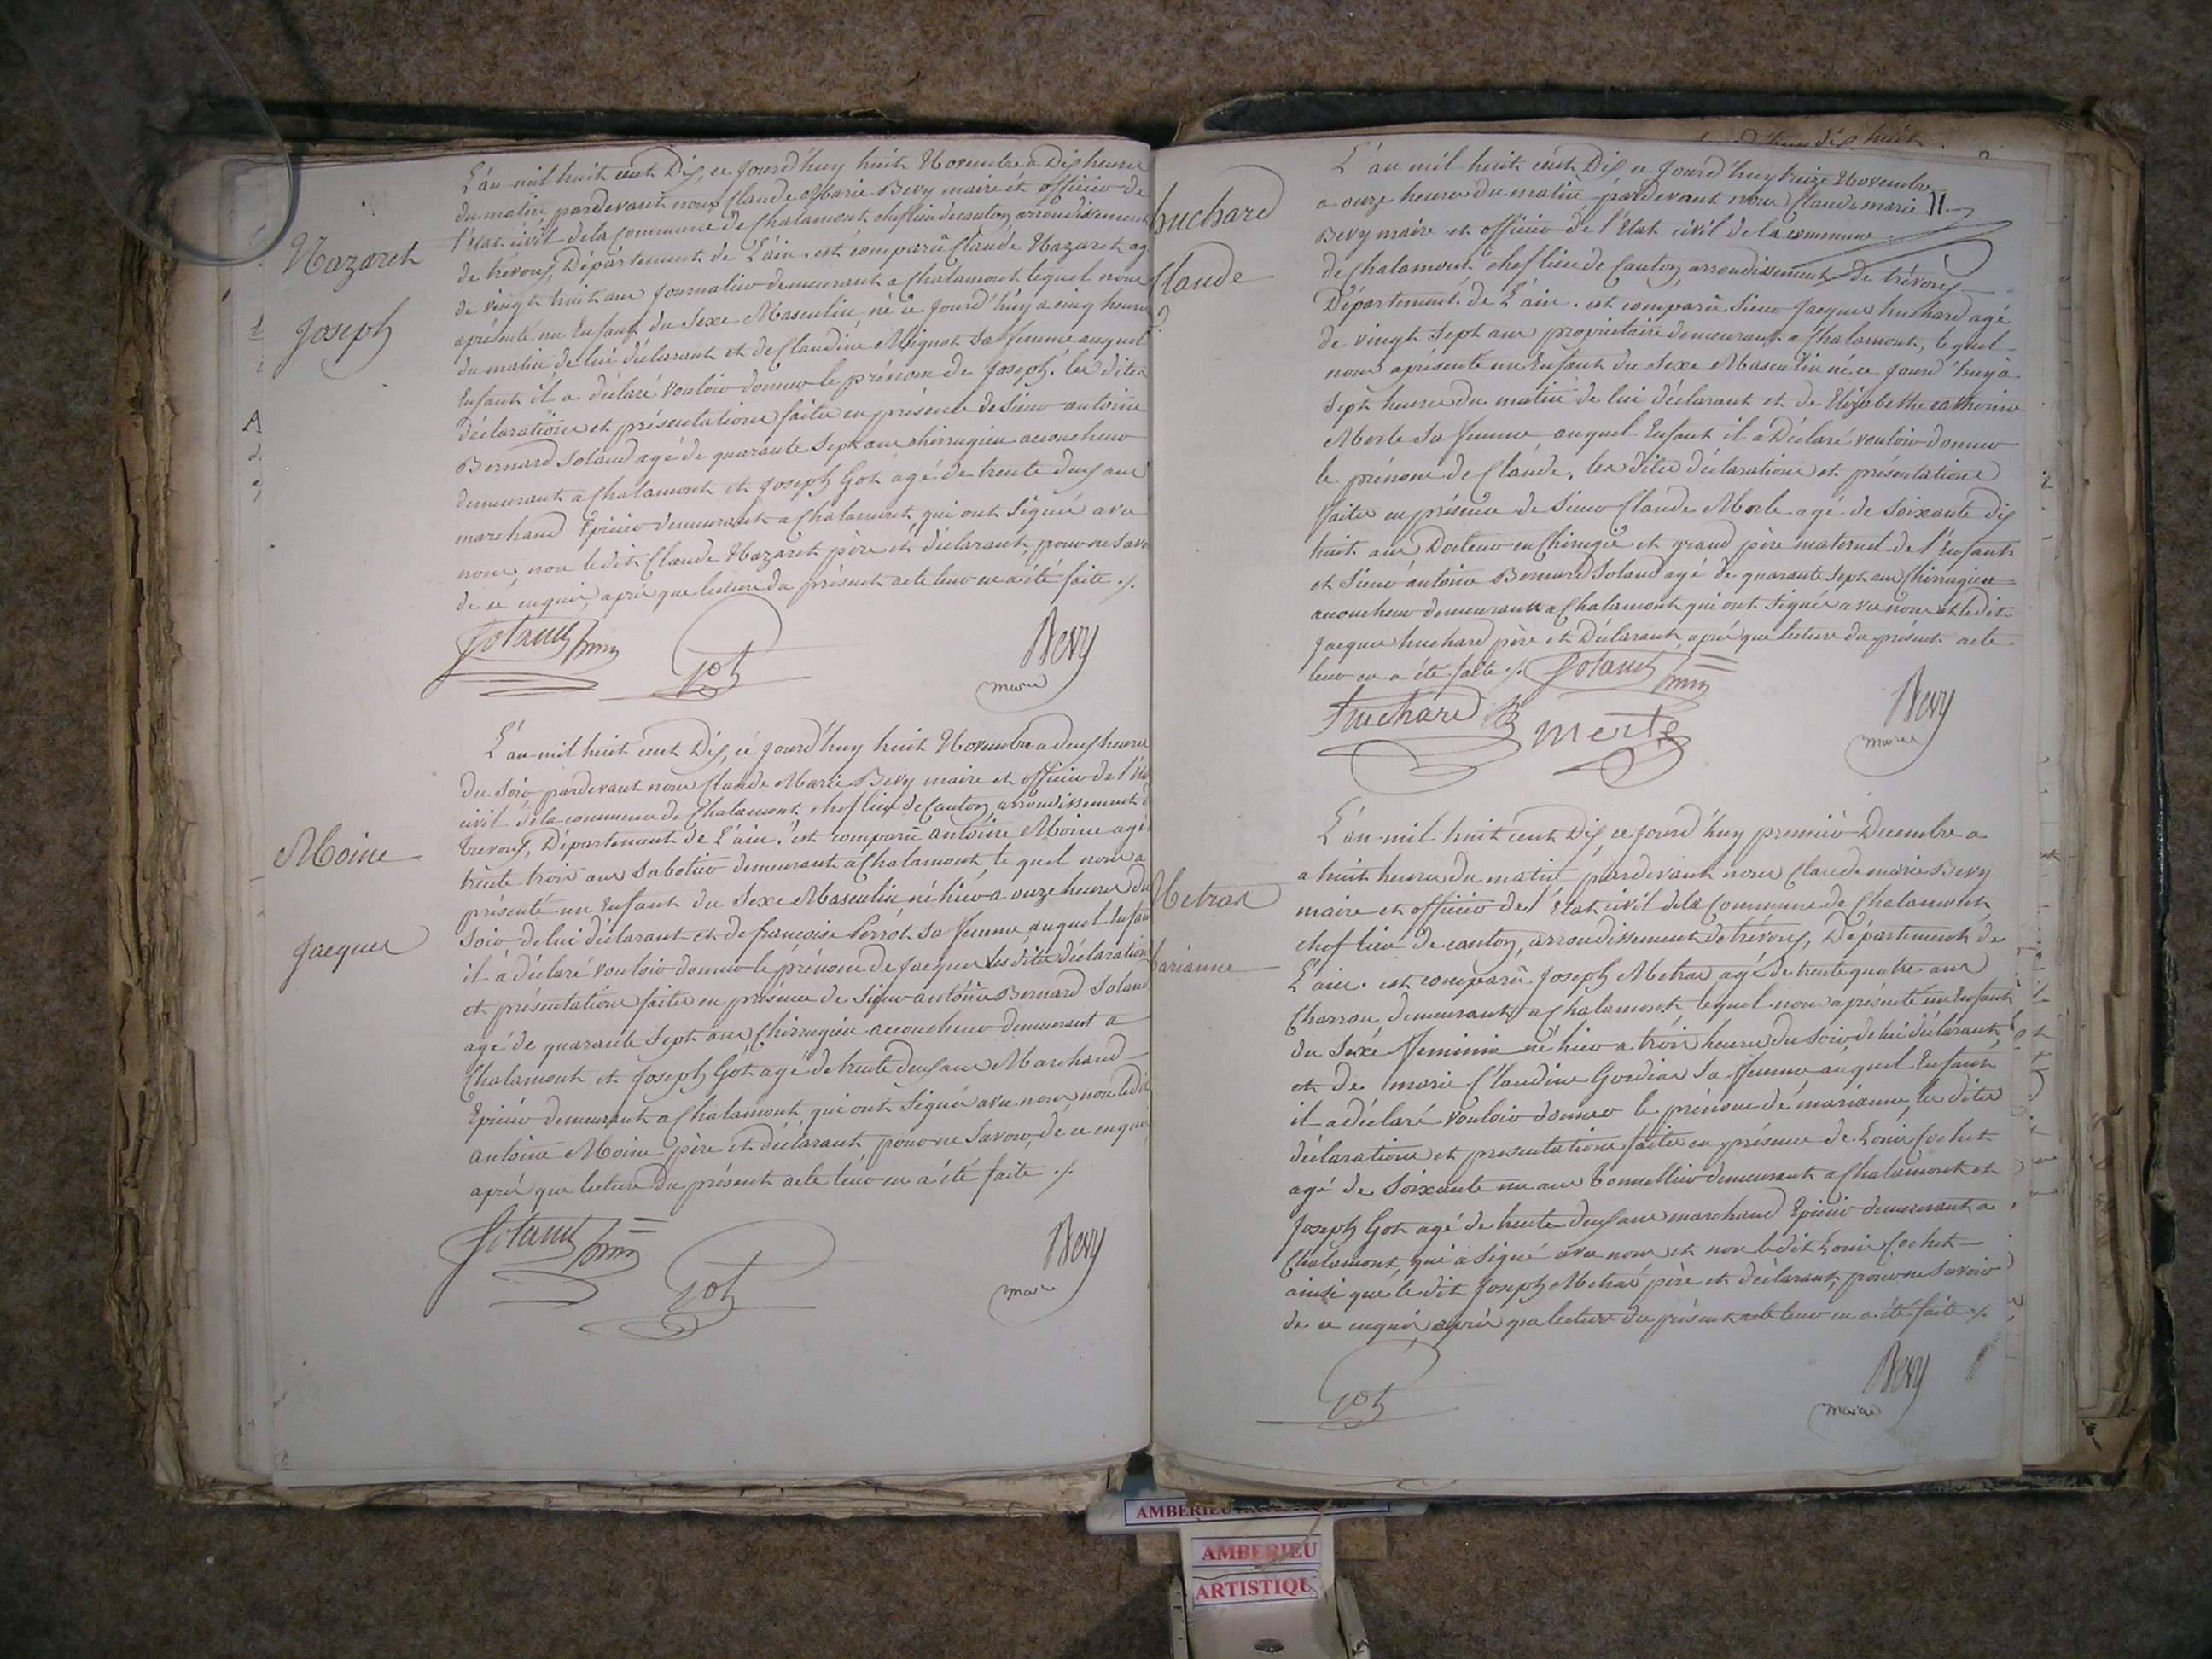 Nazaret
Joseph
L'an mil huit cent Dix, ce jourd'huy huit Novembre à Dix heures
du matin, pardevant nous Claude Marie Bevy maire et officier de
l'état civil de la Commune de Chalamont chef lieu de canton, arrondissement
de trévoux, Département de L'ain. est comparû Claude Nazaret ag
de vingt huit ans journalier demeurant a Chalamont lequel nous
a présenté un Enfant du Sexe Masculin né ce jourd'huy a cinq heures
du matin de lui déclarant et de Claudine Mignot sa femme auquel
Enfant il a déclaré vouloir donner le prénom de Joseph. les dites
déclaration et présentation faites en présence de Sieur antoine
Bernard Soland agé de quarante Sept ans chirrugien accoucheur
demeurant a Chalamont et Joseph Got agé de trente deux ans
marchand Epicier demeurant a Chalamont, qui ont Signé avec
nous, non le dit Claude Nazaret père et déclarant, pour ne Savo
de ce enquis, après que lecture du présent acte leur en a été faite ./.
Soland
Got
Bevy
maire
Moine
Jacques
L'an mil huit cent Dix, ce jourd'huy huit Novembre a deux heures
du Soir pardevant nous Claude Marie Bevy maire et officier de l'éta
civil de la commune de Chalamont chef lieu de Canton, arrondissement d
trevoux, Département de L'ain. est comparû antoine Moine agé
trente trois ans Sabotier demeurant a Chalamont, le quel nous a
présenté un Enfant du Sexe Masculin né hier a onze heures du
Soir de lui déclarant et de francoise Perrot sa femme auquel Enfan
il a déclaré vouloir donner le prénom de Jacques les dites déclaration
et présentation faites en présence de Sieur antoine Bernard Soland
agé de quarante Sept ans Chirrugien accoucheur demeurant a
Chalamont et Joseph Got agé de trente deux ans Marchand
Epicier demeurant a Chalamont qui ont Signé avec nous, non le dit
antoine Moine père et déclarant pour ne Savoir, de ce enquis
après que lecture du présent acte leur en a été faite ./.
Soland
Got
Bevy
maire
huchard
Claude
L'an mil huit cent Dix, ce jourd'huy treize Novembre
a onze heures du matin pardevant nous Claude marie
Bevy maire et officier de l'Etat civil de la commune
de Chalamont chef lieu de Canton, arrondissement de trévoux
Département de L'ain. est comparû Sieur Jacques huchard agé
de vingt Sept ans propriétaire demeurant a Chalamont, lequel
nous a présenté un Enfant du Sexe Masculin né ce jourd'huy à
Sept heures du matin de lui déclarant et de Elizabethe catherine
Merle Sa femme auquel Enfant il a Déclaré vouloir donner
le prénom de Claude. les dites déclaration et présentation
faites en présence de Sieur Claude Merle agé de Soixante dix
huit ans Docteur en Chirugie et grand père maternel de l'Enfant
et Sieur antoine Bernard Soland agé de quarante Sept ans Chirrugien
accoucheur demeurant a Chalamont qui ont Signé avec nous et le dit
Jacques huchard père et Déclarant, après que lecture du présent acte
leur en a été faite ./. Soland
huchard
merle
Bevy
maire
Metras
Marianne
L'an mil huit cent Dix, ce jourd'huy premier Decembre a
a huit heures du matin pardevant nous Claude marie Bevy
maire et officier de l'Etat civil de la Commune de Chalamont
chef lieu de canton, arrondissement de trévoux, Département de
L'ain. est comparû Joseph Metras agé de trente quatre ans
Charron demeurant a Chalamont, lequel nous a présenté un Enfant
du Sexe feminin né hier a trois heures du Soir de lui déclarant
et de marie Claudine Gordias Sa femme auquel Enfant
il a déclaré vouloir donner le prénom de marianne, les dites
déclaration et presentation faites en présence de Louis Cochet
agé de Soixante un ans tonnellier demeurant a Chalamont et
Joseph Got agé de trente deux ans marchand Epicier demeurant a
Chalamont, qui a Signé avec nous et non le dit Louis Cochet
ainsi que le dit Joseph Metras père et déclarant, pour ne Savoir
de ce enquis, après que lecture du présent acte leur en a été faite ./.
Got
Bevy
maire
AMBERIEU
AMBERIEU
ARTISTIQU